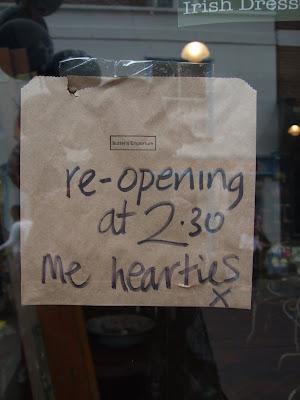 Irish Dress
Susie's Emporium
re-opening
at 2.30
Me hearties
x